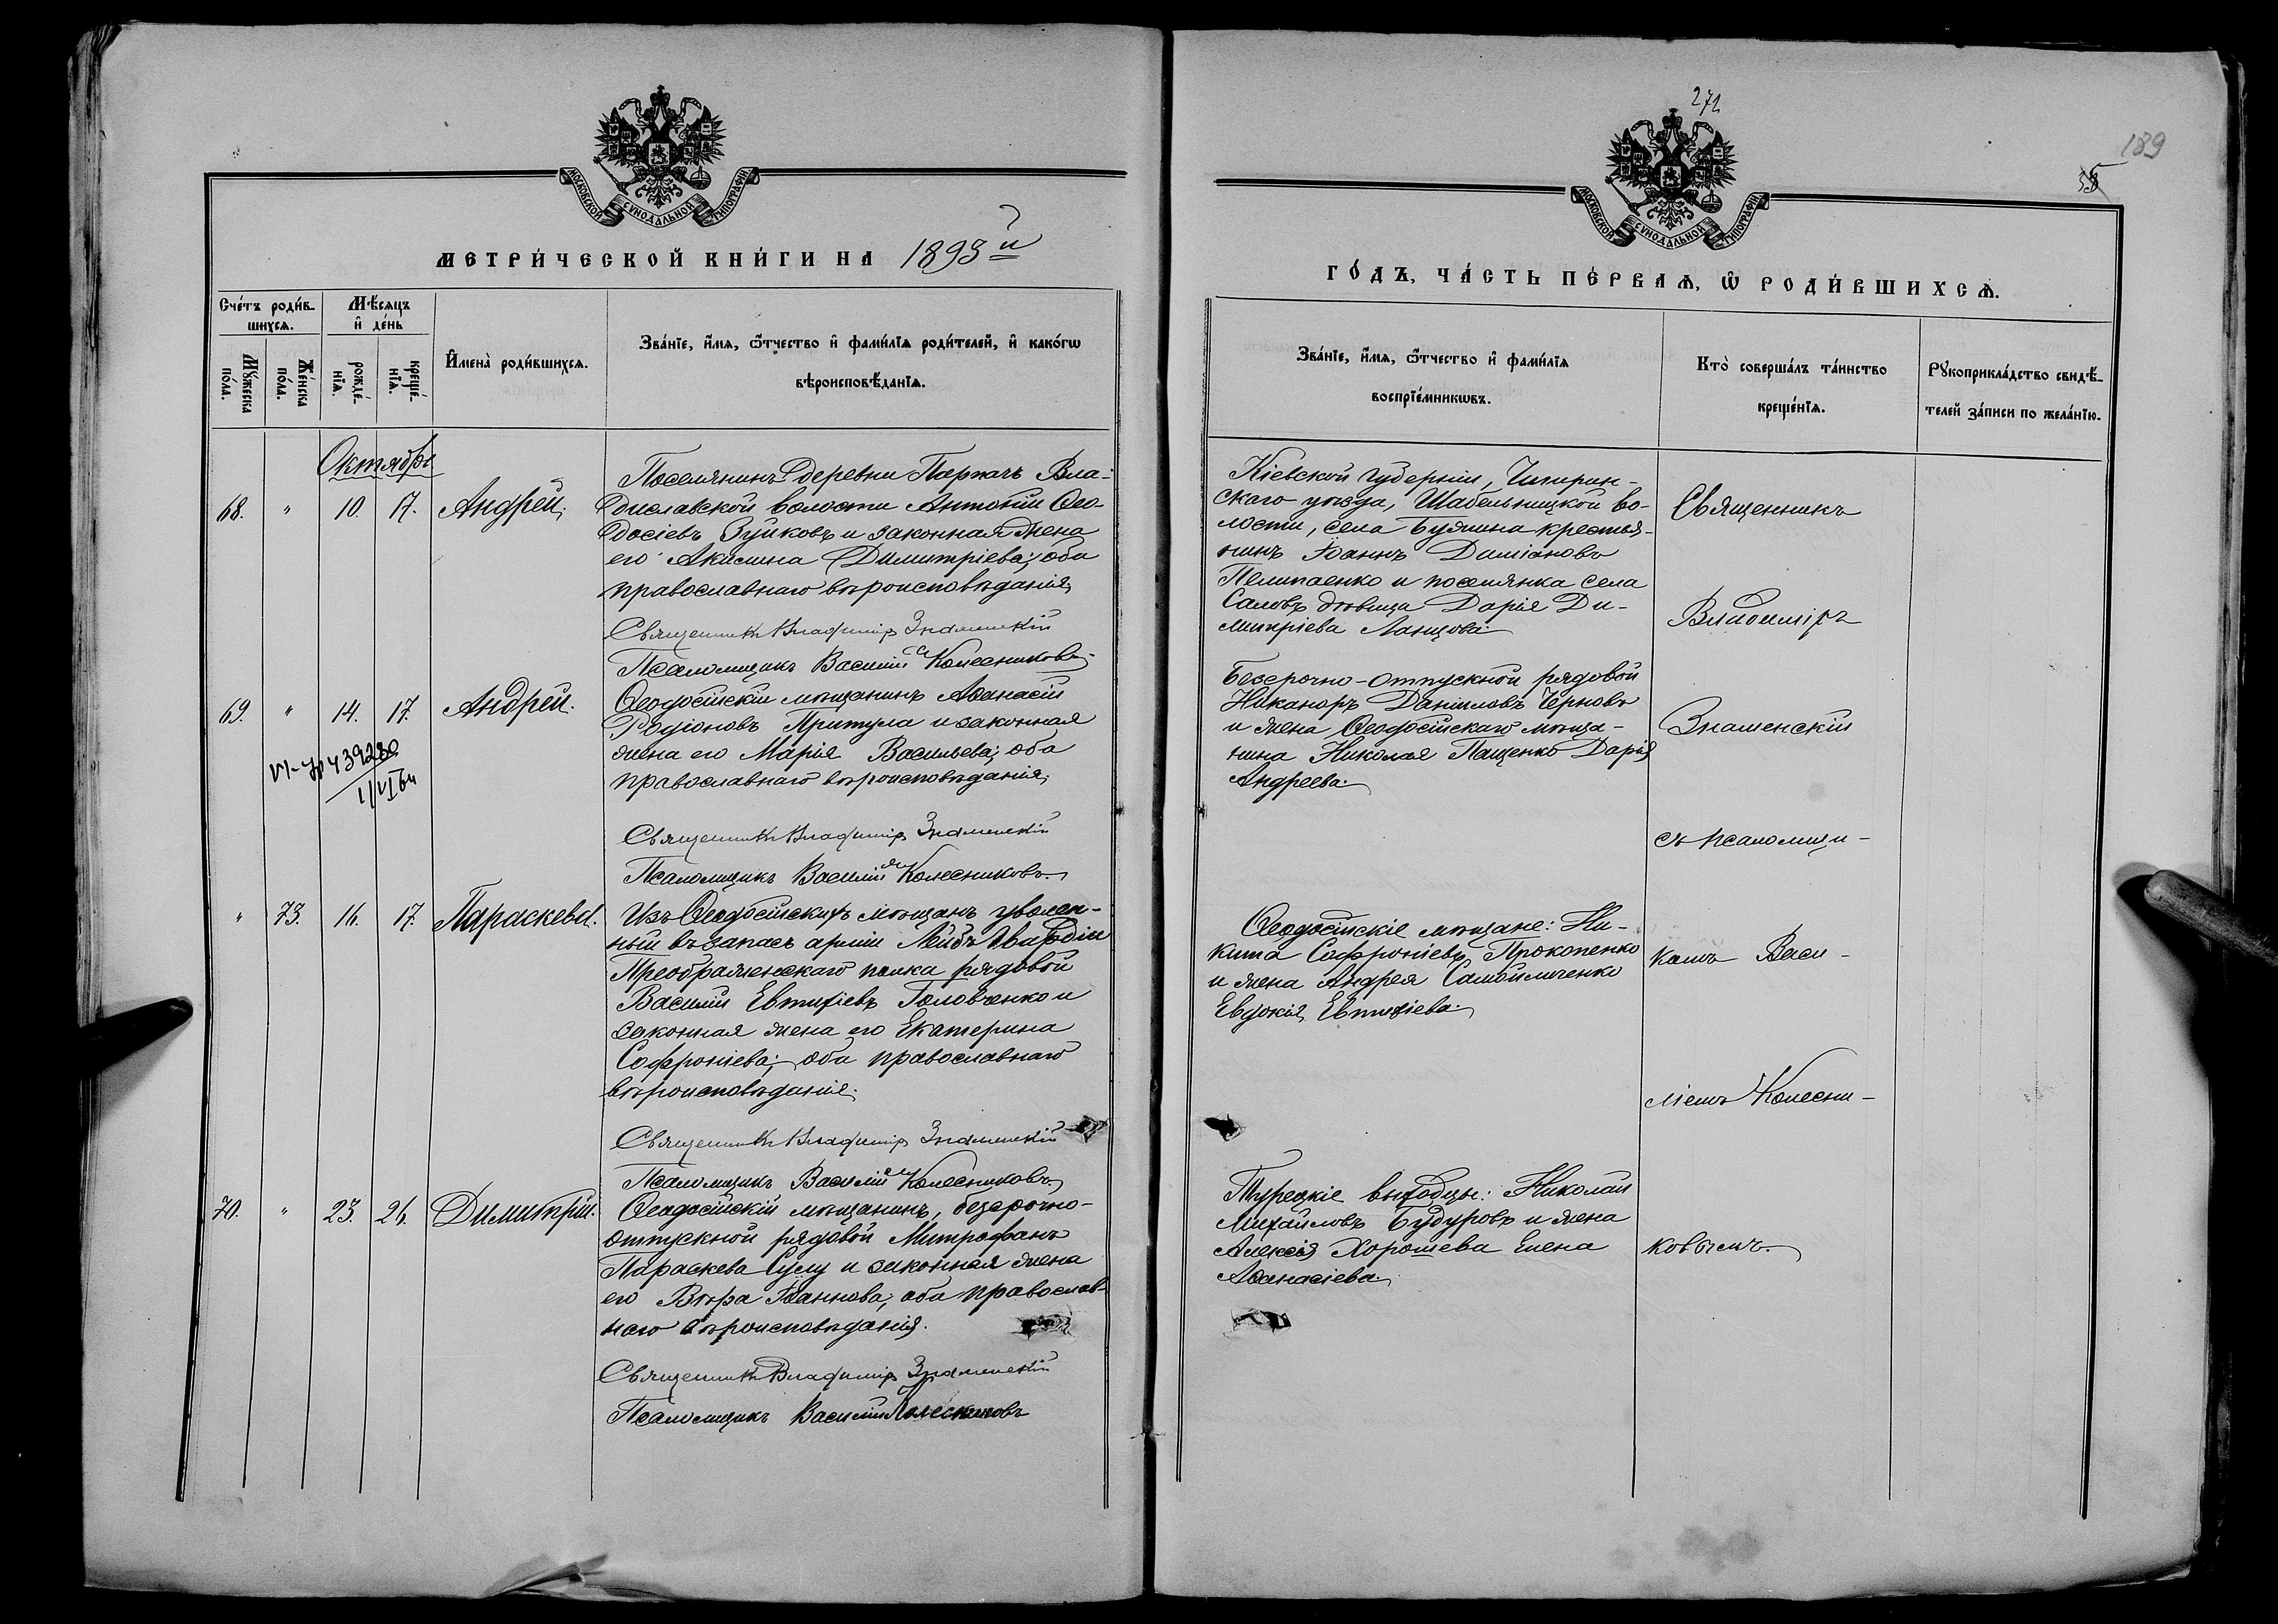 МОСКОВСКОЙ СУНОДАЛЬНОЙ ТИПОГРАФІИ
МЕТРИ́ЧЕСКОЙ КНИ́ГИ НА 1893й
Сче́тъ роди́в-
шихсѧ.
Мѣ́сѧцъ
и҆ де́нь
Мꙋ́жеска по́ла.
Же́нска по́ла.
рожде́-
нїѧ.
креще́-
нїѧ.
И҆мена̀ роди́вшихсѧ.
Зва́нїе, и҆́мѧ, ѻ҆́тчество и҆ фами́лїѧ роди́телей, и҆ како́гѡ
вѣроисповѣ́данїѧ.
Октябрь
68. " 10. 17. Андрей.
Поселянинъ деревни Парпачъ Вла-
диславской волости Антоній Ѳео-
досіевъ Зуйковъ и законная жена
его Акилина Димитріева; оба
православнаго вѣроисповѣданія.
Священникъ Владиміръ Знаменскій
Псаломщикъ Василій Колесниковъ.
69. " 14. 17. Андрей.
Ѳеодосійскій мѣщанинъ Аѳанасій
Родіоновъ Притула и законная
жена его Марія Васильева; оба
православнаго вѣроисповѣданія.
439280
Священникъ Владиміръ Знаменскій
Псаломщикъ Василій Колесниковъ.
" 73. 16. 17. Параскева.
Изъ Ѳеодосійскихъ мѣщанъ уволен-
ный въ запасъ арміи Лейбъ Гвардіи
Преображенскаго полка рядовой
Василій Евтихіевъ Головченко и
законная жена его Екатерина
Софроніева; оба православнаго
вѣроисповѣданія.
Священникъ Владиміръ Знаменскій
Псаломщикъ Василій Колесниковъ.
70. " 23. 26. Димитрій.
Ѳеодосійскій мѣщанинъ, безсрочно-
отпускной рядовой Митрофанъ
Параскева Сулу и законная жена
его Вѣра Іоаннова; оба православ-
наго вѣроисповѣданія.
Священникъ Владиміръ Знаменскій
Псаломщикъ Василій Колесниковъ
272
189
МОСКОВСКОЙ СУНОДАЛЬНОЙ ТИПОГРАФІИ
ГО́ДЪ, ЧА́СТЬ ПЕ́РВАѦ, Ѽ РОДИ́ВШИХСѦ.
Зва́нїе, и҆́мѧ, ѻ҆́тчество и҆ фами́лїѧ
воспрїе́мникѡвъ.
Кто̀ соверша́лъ та́инство
креще́нїѧ.
Рꙋкоприкла́дство свидѣ́-
телей за́писи по жела́нїю.
Кіевской губерніи, Чигирин-
скаго уѣзда, Шабельницкой во-
лости, села Бужина крестья-
нинъ Іоаннъ Даміановъ
Пелипаенко и поселянка села
Саловъ дѣвица Дарія Ди-
митріева Ланцова.
Безсрочно-отпускной рядовой
Никаноръ Даніиловъ Черновъ
и жена Ѳеодосійскаго мѣща-
нина Николая Пащенко Дарія
Андреева.
Ѳеодосійскіе мѣщане: Ни-
кита Софроніевъ Прокопенко
и жена Андрея Самойличенко
Евдокія Евтихіева.
Турецкіе выходцы: Николай
Михайловъ Будуровъ и жена
Алексія Хорошева Елена
Аѳанасіева.
Священникъ
Владиміръ
Знаменскій
съ псаломщи-
комъ Васи-
ліемъ Колесни-
ковымъ.